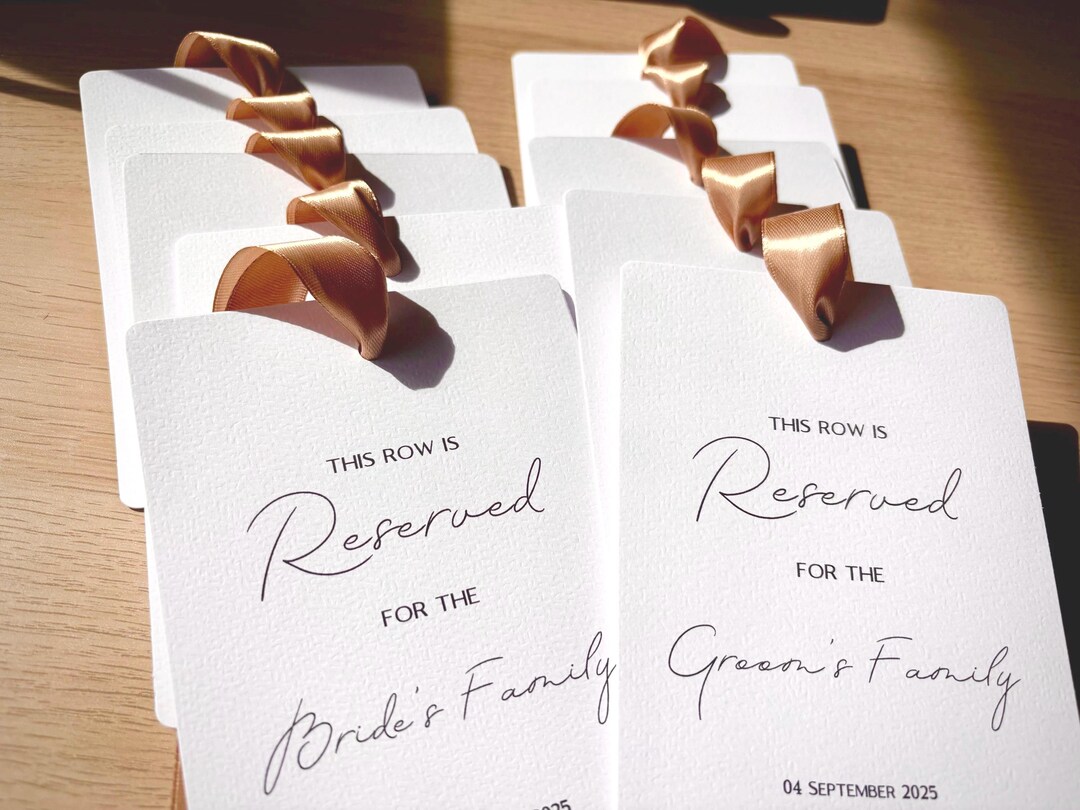 THIS ROW IS
Reserved
FOR THE
Bride's Family
2025
THIS ROW IS
Reserved
FOR THE
Groom's Family
04 SEPTEMBER 2025